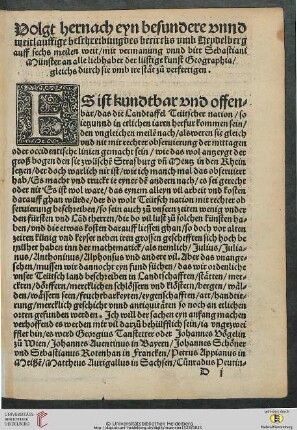 Volgt hernach eyn besundere vnnd
weitleuffige beschreibung des bezircks vmb Heydelberg
auff sechs meilen weit/ mit vermanung vnnd bitt Sebastiani
Münster an alle liebhaber der lustige kunst Geographia/
gleichs durch sie vmb ire stat zu verfertigen.
ES ist kundtbar vnd offen-
bar/ das die Landtaffel Teütscher nation/ so
ietzunnd in etlichen iaren herfur kommen sein/
den vngleichen meile nach/ als weren sie gleich
vnd nit mit rechter obseruierung der mittagen
oder occidentische linien gemacht sein/ wie das wol anzeygt die
groß bogen den sie zwische Straßburg vn Mentz in den Rhein
setzen/ der doch warlich nit ist/ wie ich manch mal das obseruiert
hab/ Es macht vnd truckt ie eyner dē andern nach/ es sei gerecht
oder nit Es ist wol ware/ das eynem alleyn vil arbeit vnd kosten
darauff ghan würde/ der do wolt Teütsch nation mit rechter ob
seruierung beschreiben/
den fürsten vnd Lādtherren/ die do vil lust zu solchen künsten ha-
ben/ vnd die etwas kosten darauff liessen ghan/ so doch vor alten
zeyten künig vnd keyser neben iren grossen geschefften sich doch be
mühet haben inn der mathematick/ als nemlich/ Julius/ Julia-
nus/ Anthoninus/ Alphonsus vnd andere vil. Aber das vnange-
sehen/ mussen wir dannocht eyn fund süchen/ das wir ordenliche
vnser Teütsch land beschreiben in Landtschafften/ stätten/ mer-
ckten/ dörffern/ mercklichen schlössern vnd klöstern/ bergen/ wäl-
den/ wässern/ seen/ fruchtbarkeyten/ eygenschafften/ art/ handtie-
rung/ mercklich geschicht vnnd antiquiteten so noch an etlichen
orten gefunden werden. Ich will der sachen eyn anfang machen
verhoffend es werden mit vil darzu behülfflich sein/ als vngezwei
ffelt bin/ es werd Georgius Tansteter oder Johannes Vögelin
zu Wien/ Johannes Auentinus in Bayern/ Johannes Schöner
vnd Sebastianus Rotenhan in Francken/ Petrus Appianus in
Meißē/ Mattheus Aurigallus in Sachsen/ Cünradus Peutin-
D j
UNIVERSITÄTS-
BIBLIOTHEK
HEIDELBERG
© Universitätsbibliothek Heidelberg